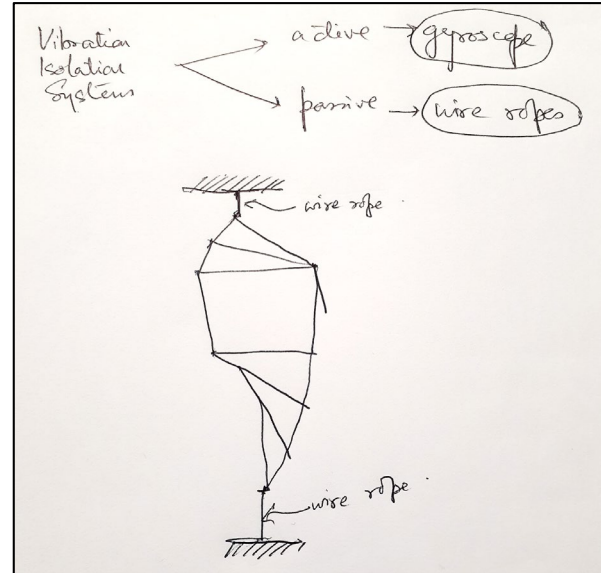 Vibration
Isolation
Systems
active
gyroscope
passive
wire ropes
wire rope
wire rope